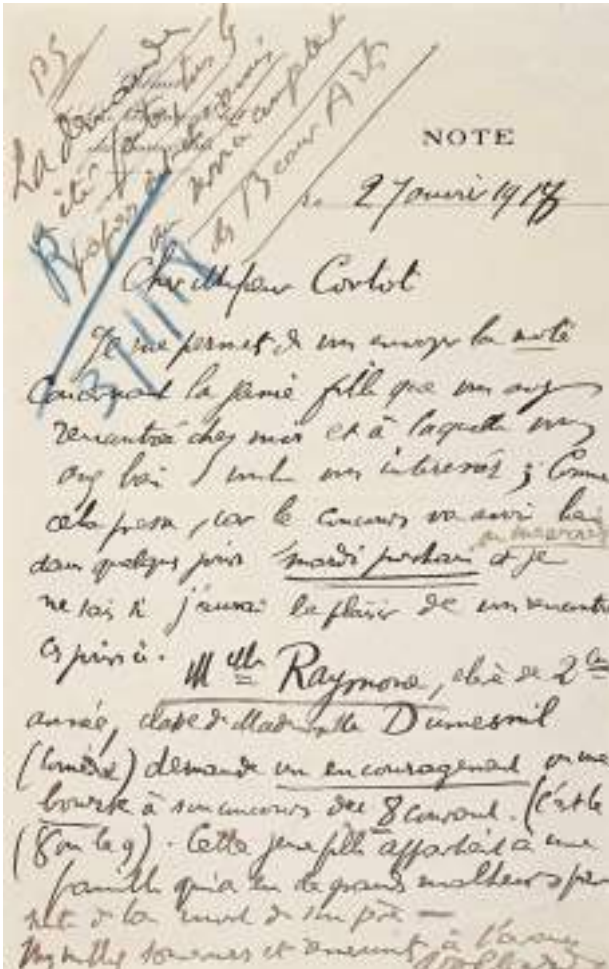 PS
La demande
a été faite
NOTE
2 Janvier 1918
des Beaux Arts
Cher Monsieur Cortot
Je me permets de vous envoyer la note
Concernant la jeune fille que vous avez
rencontrée chez moi et à laquelle vous
avez bien voulu vous intéresser ; Comme
cela presse, car le Concours va avoir lieu
ou mercredi
dans quelques jours mardi prochain et je
ne sais si j'aurai le plaisir de vous rencontrer
ces jours ci.
Mlle Raymone, élève de 2ème
année, classe de Mademoiselle Dumesnil
(Comédie) demande un encouragement ou une
bourse à son concours du 8 Courant. (C'est le
(8 ou le 9). Cette jeune fille appartient à une
famille qui a eu de grands malheurs par
suite de la mort de son père —
à l'avance